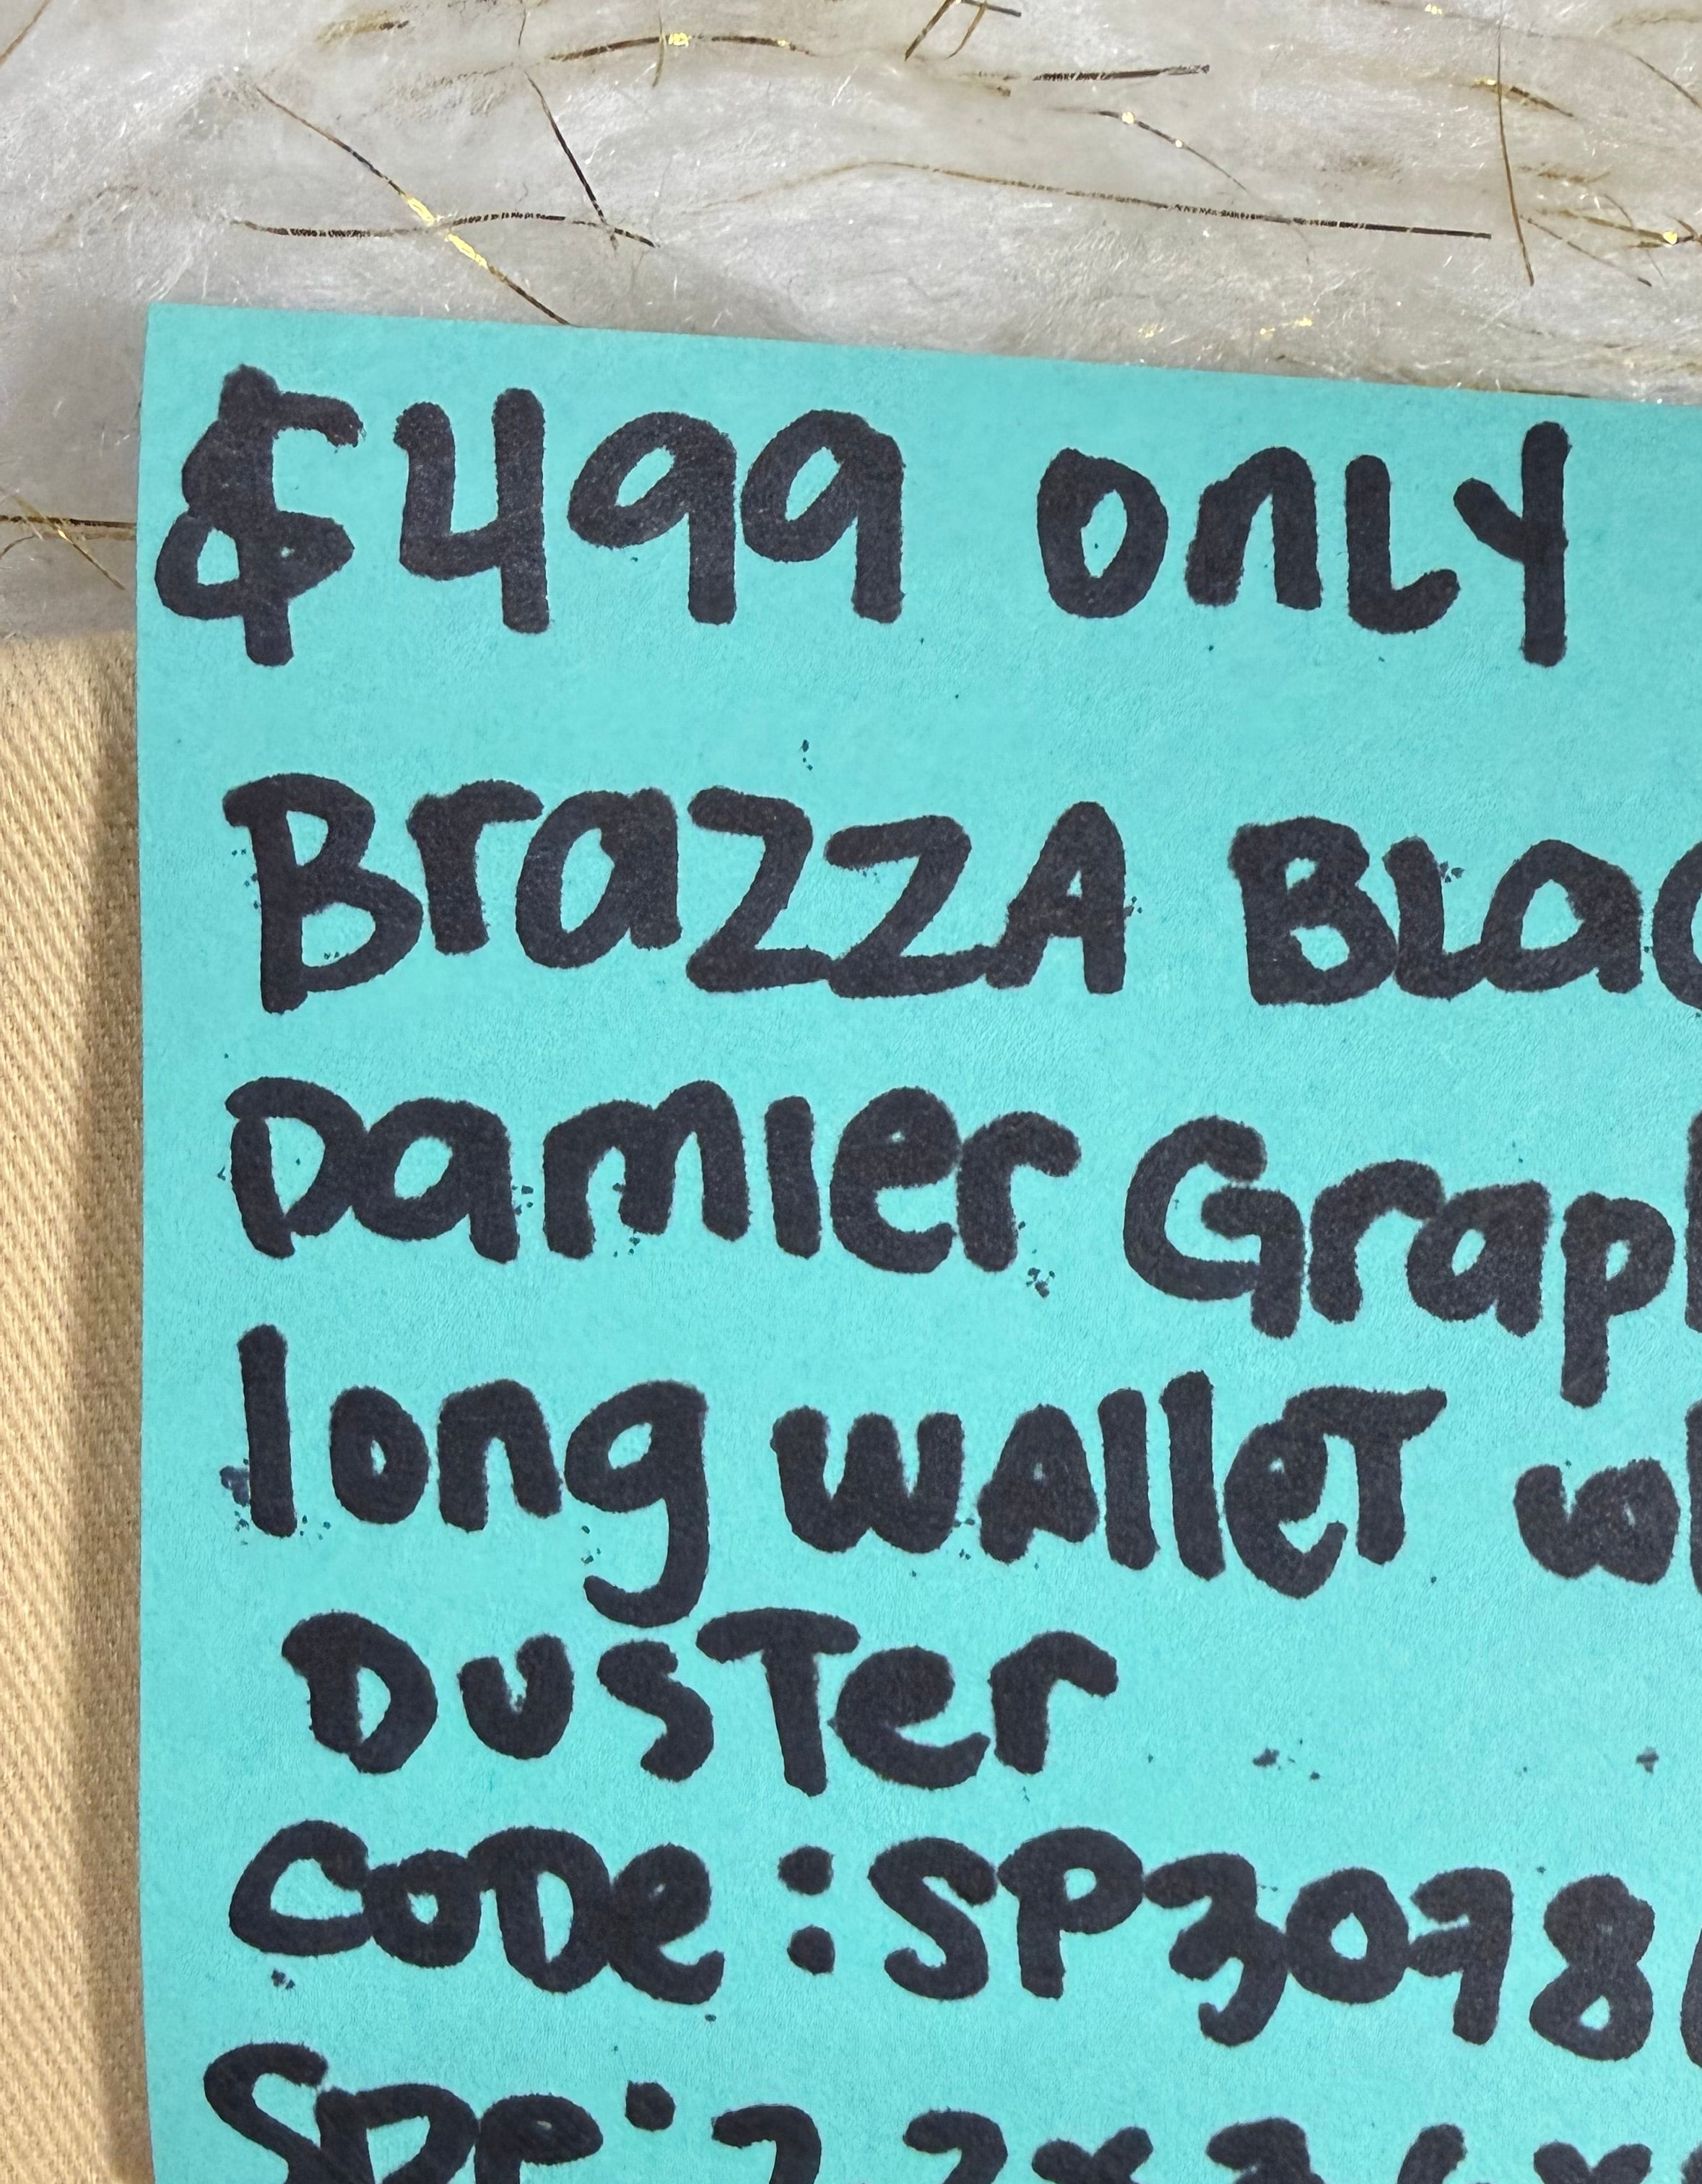 $499 only
BrazzA Blac
Damier Grap
long wAlleT w
DusTer
CoDe: SP3078